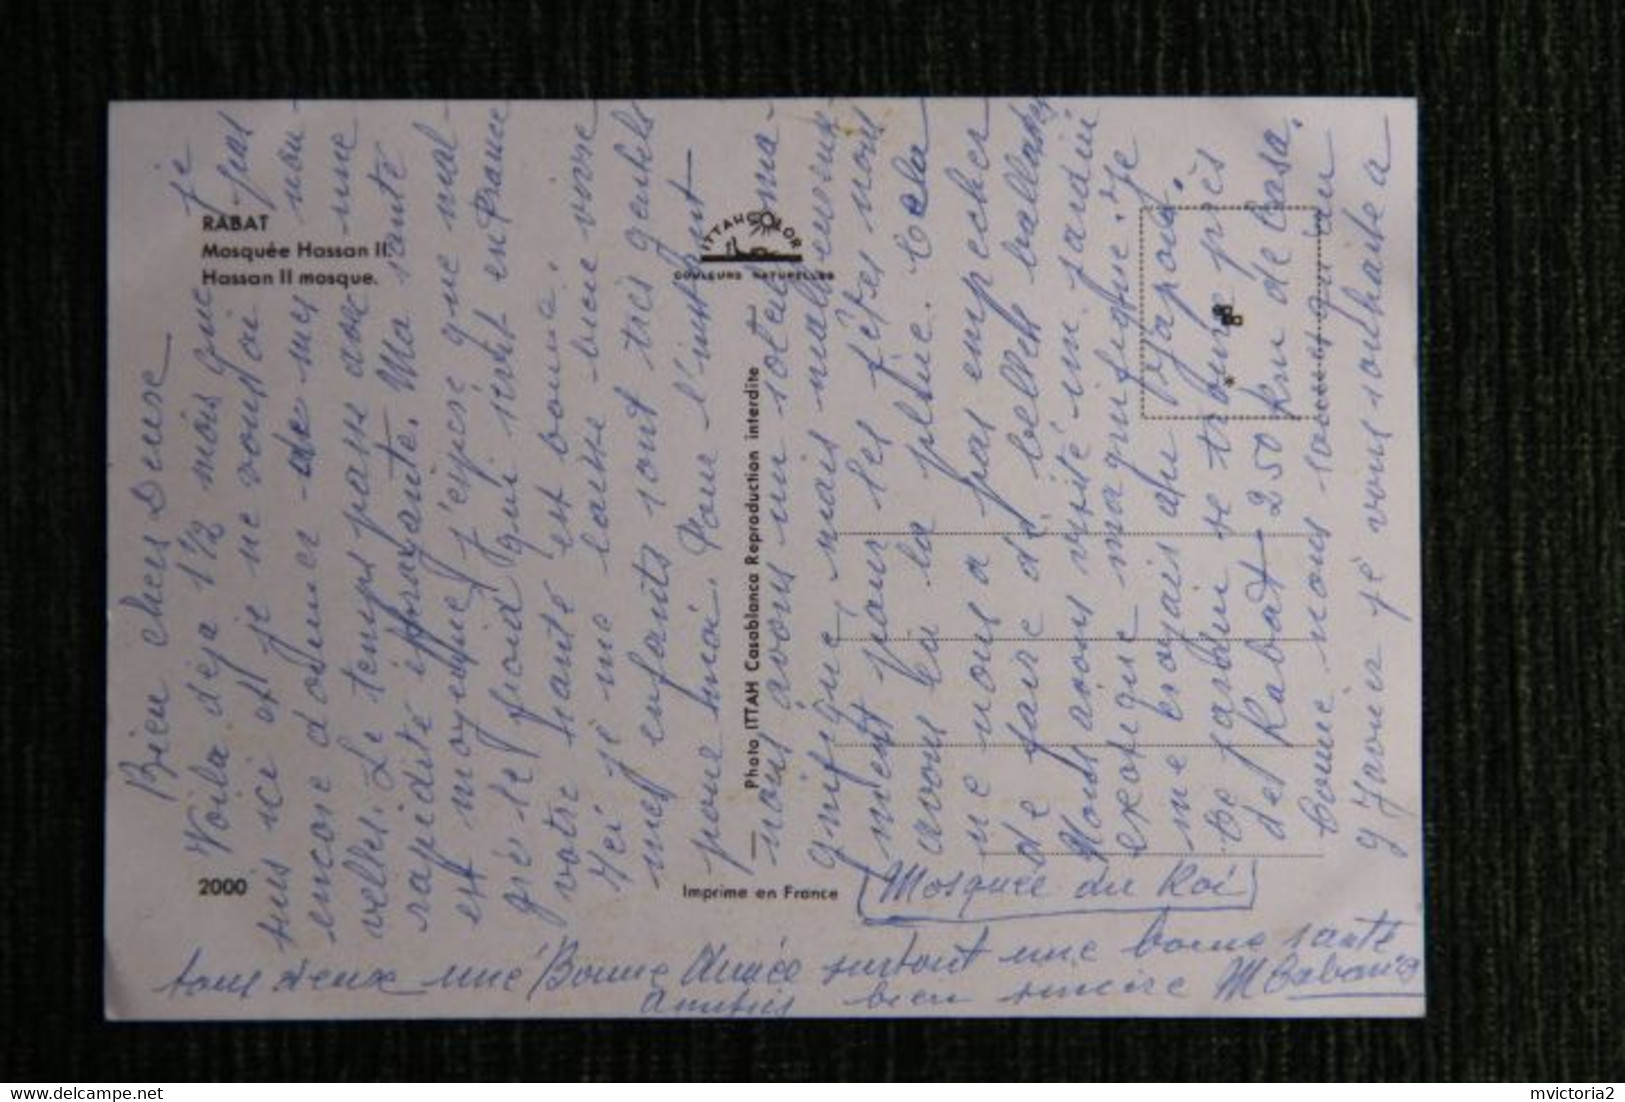 RABAT
Mosquée Hassan II.
Hassan II mosque.
ITTAHCOLOR
COULEURS NATURELLES
Photo ITTAH Casablanca Reproduction interdite
2000
Imprime en France
Bien chers Denise
Voila déja 1 1/2 mois que je
suis ici et je ne vous ai pas
encore donner de mes nou-
velles. Le temps passe avec une
rapidité effrayante. Ma santé
est moyenne, j'espère que mal-
gré le froid qui sévit en France
votre santé est bonne.
Ici je me laisse bien vivre
mes enfants sont très gentils
pour moi. Pour l'instant
nous avons un soleil ma-
gnifique, mais malheureuse-
ment pour les fêtes nous
avons eu la pluie. Cela
ne nous a pas empecher
de faire de belles ballades
Nous avons visité un jardin
exotique magnifique. Je
me croyais au Japon.
Ce jardin se trouve près
de Rabat 250 km de Casa.
Comme nous sommes qu'au
9 Janvier je vous souhaite a
tous deux une Bonne Année surtout une bonne santé
Amitiés bien sincère
(Mosquée du Roi)
mvictoria2